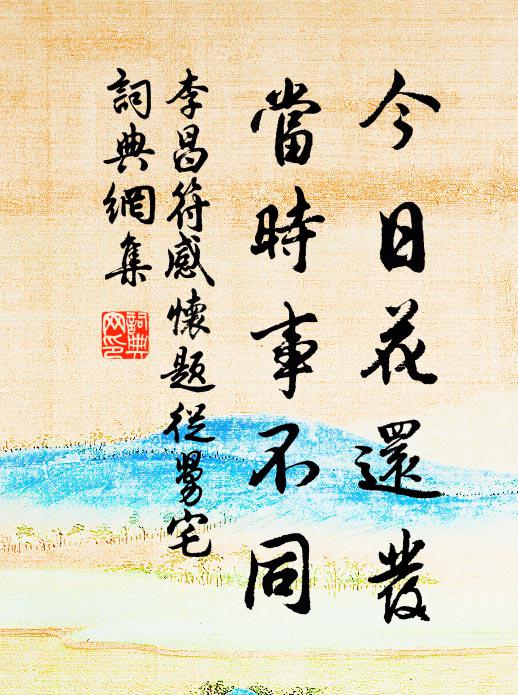 今日花還發
當時事不同
李昌符感懷題從舅宅
詞典網集
詞典网印